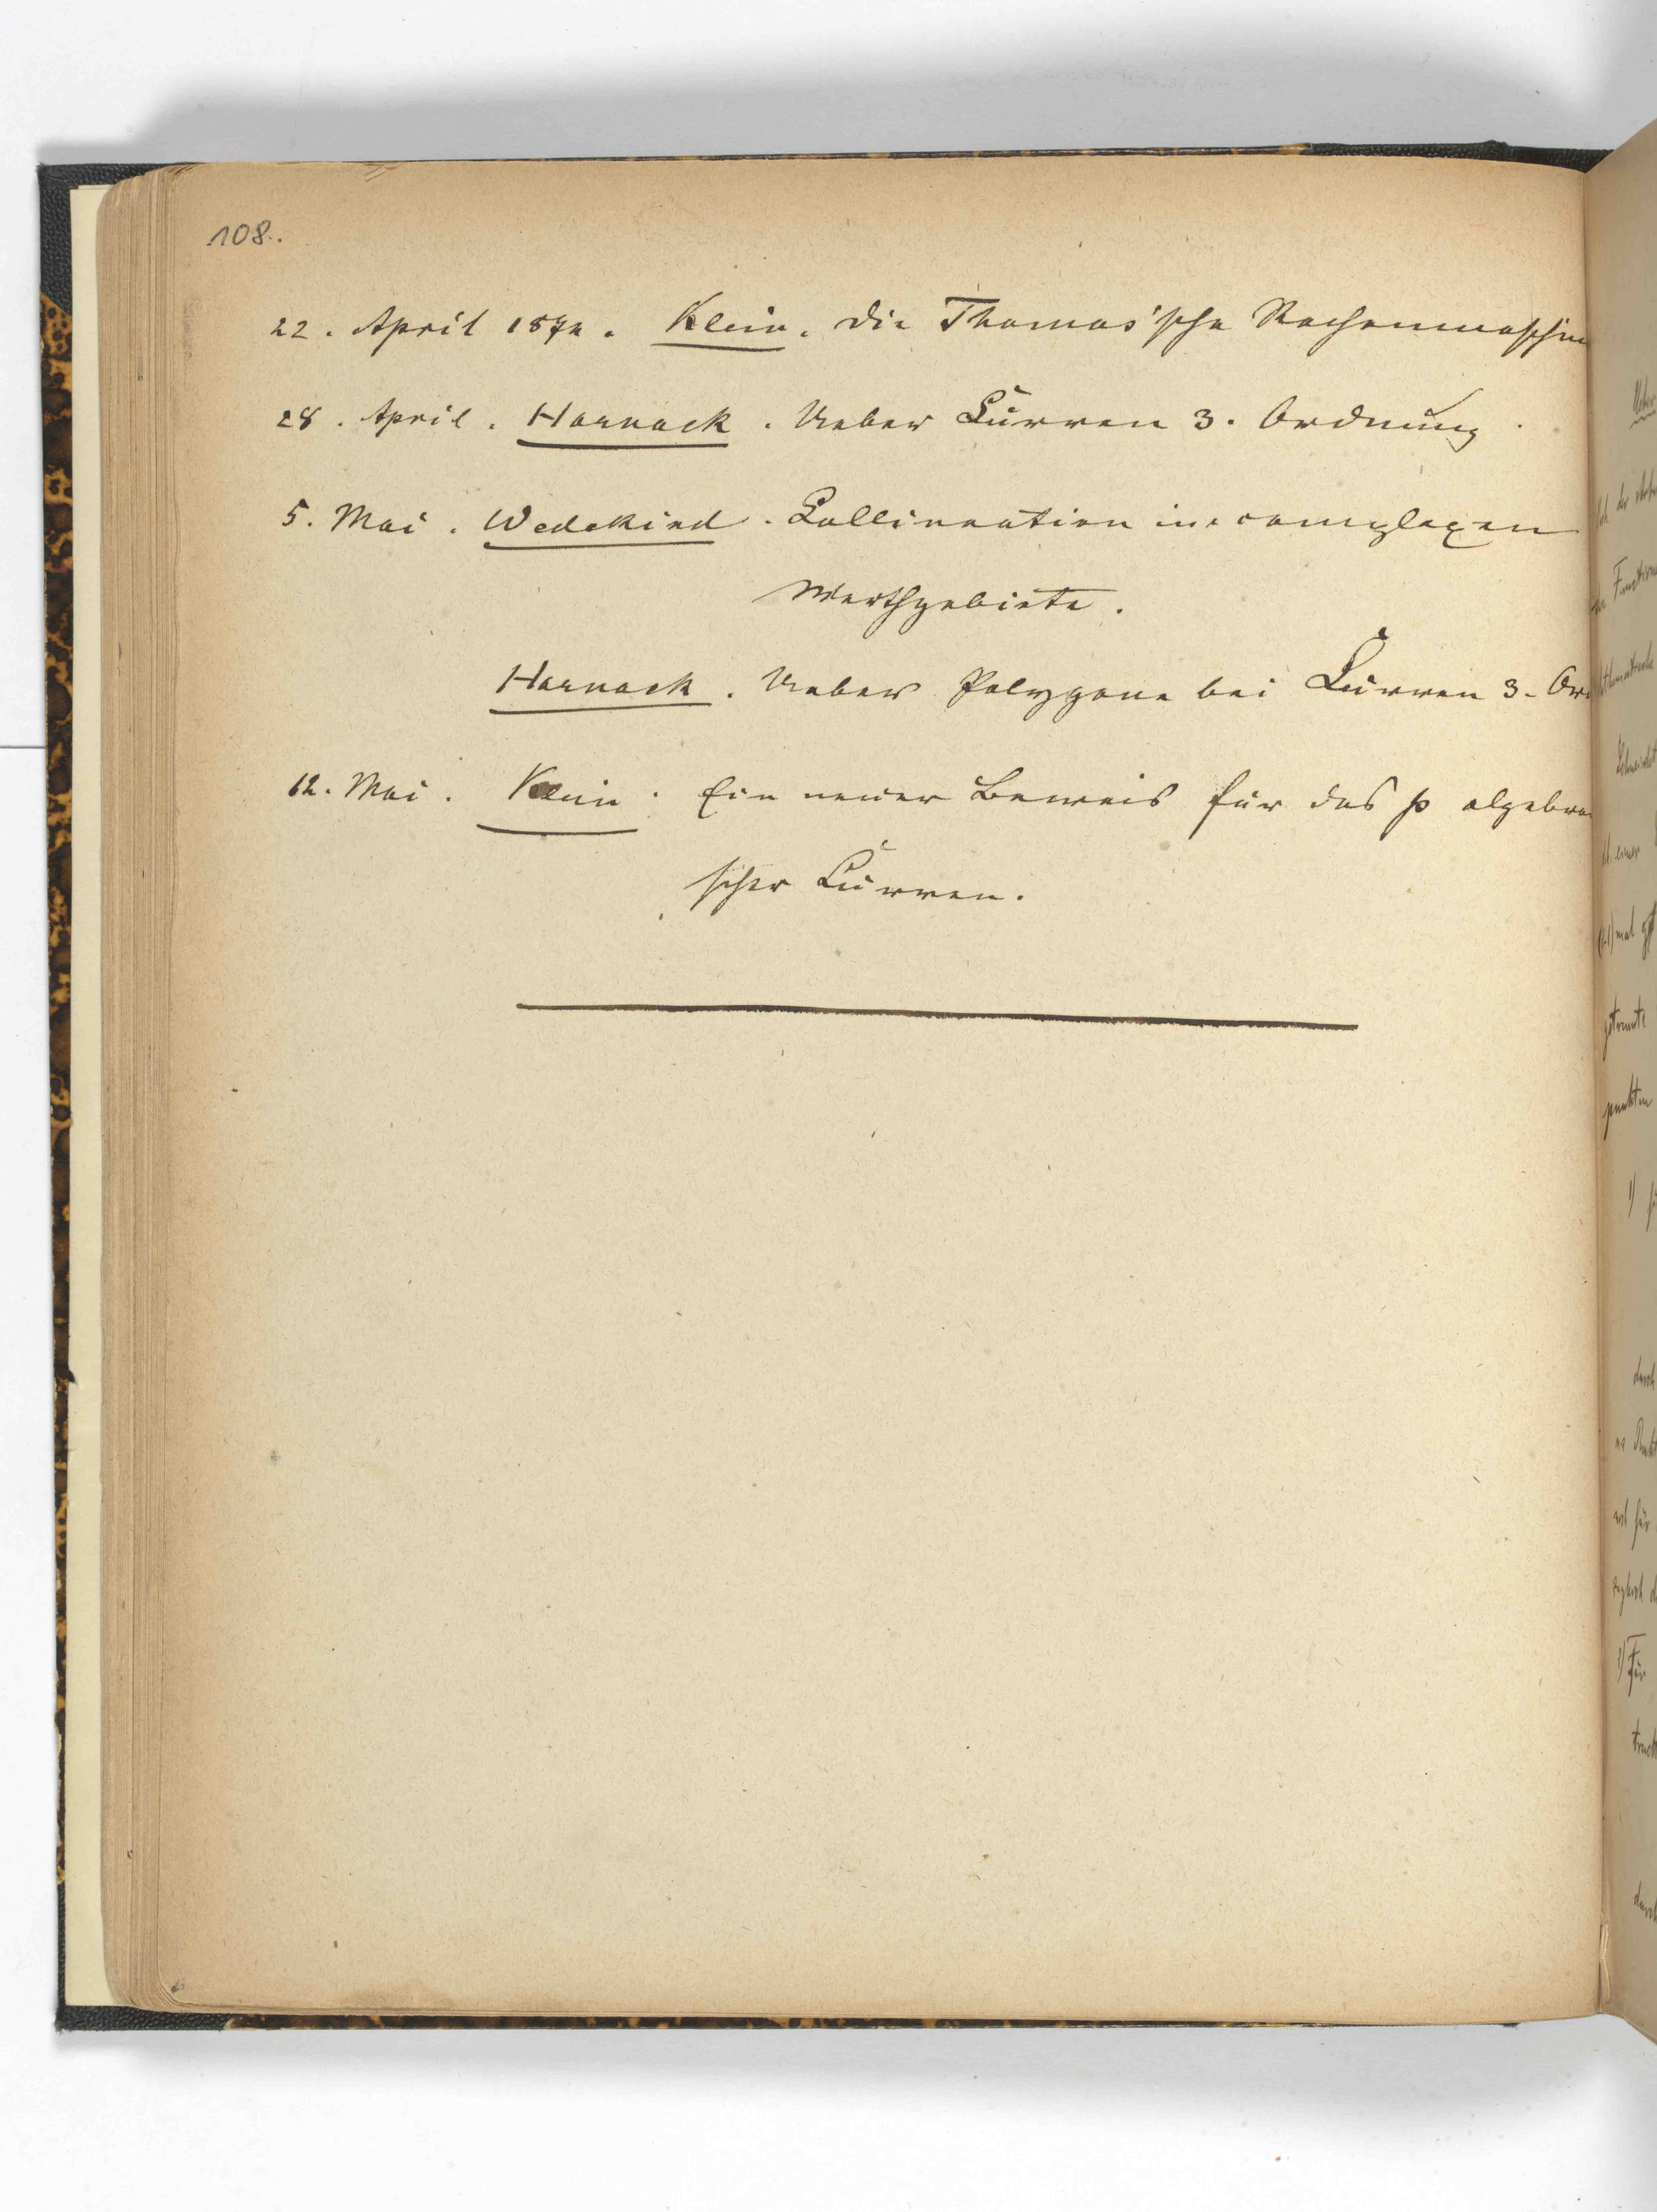 108.
22. April 1874. Klein. Die Thomas'sche Rechenmaschin
28. April. Harnack. Ueber Curven 3. Ordnung.
5. Mai. Wedekind. Collineation im complexen
Werthgebiete.
Harnack. Ueber Polygone bei Curven 3. Ord
12. Mai. Klein. Ein neuer Beweis für das p algebrai
scher Curven.